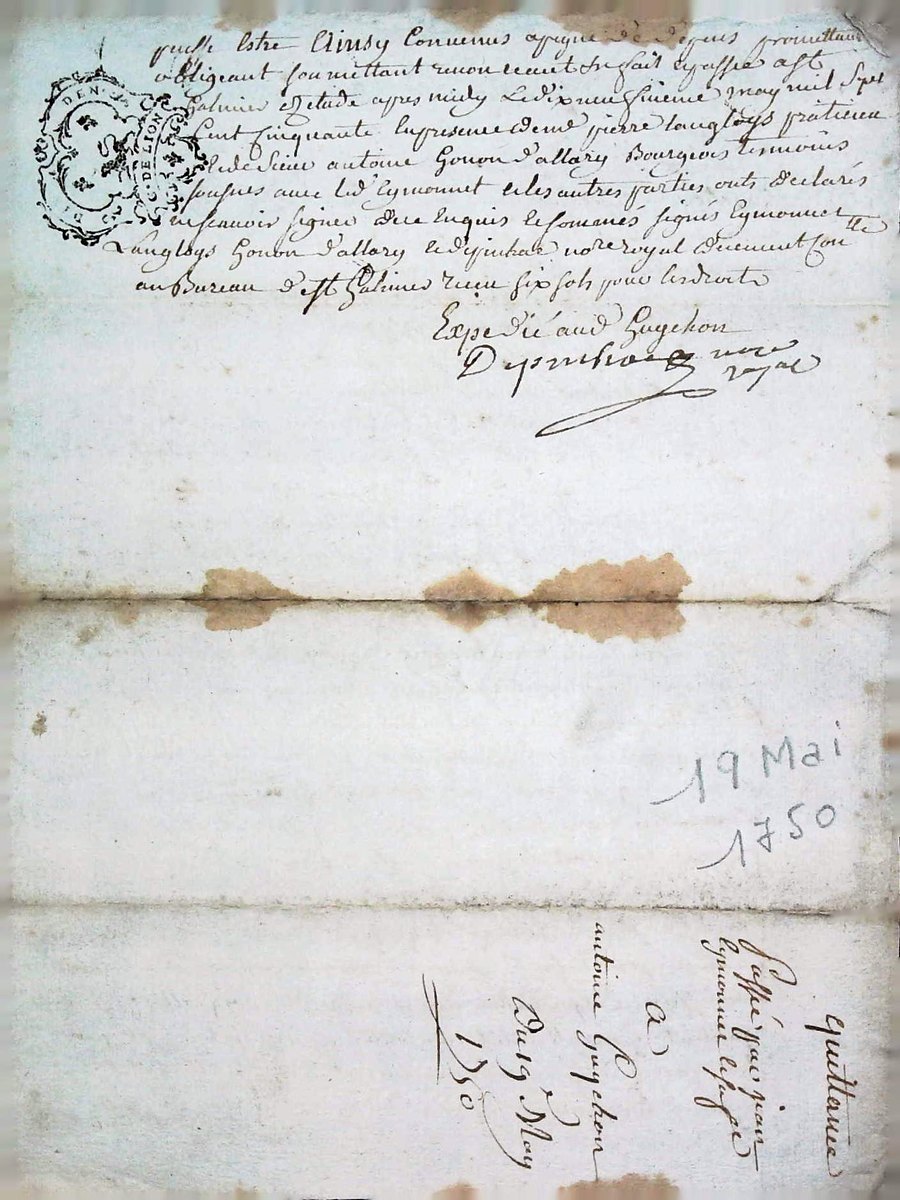 puisse Estre Ainsy Convenus a peyne de depens promettant
obligeant soumettant renonceant &c fait & passé a St
Galmier Etude apres midy Le dix neufvieme may mil Sept
Cent Cinquante En presence de me pierre Langloys praticien
& de Sieur antoine Gonon d'allary Bourgeois temoins
sousnes avec led Eymonnet & les autres parties onts declarés
ne scavoir signer de ce Enquis & sommés signés Eymonnet
Langloys Gonon d'allary & no.re royal
au Bureau de St Galmier recu six sols pour les droits
Expedié aud Guychon
no.re
royal
DEN
G. DE LION
19 Mai
1750
Quittance
Passée par jean
Eymonnet
A
antoine Guychon
Du 19e May
1750